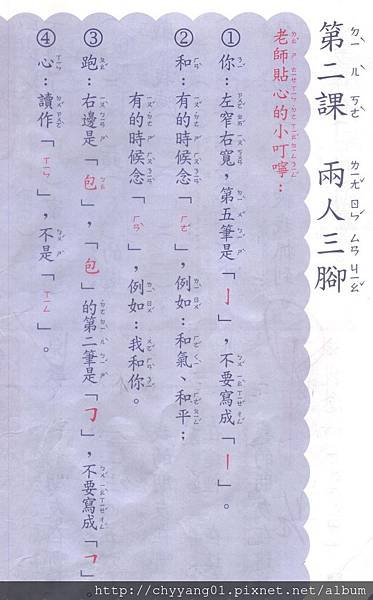 第二課 兩人三腳
老師貼心的小叮嚀：
①你：左窄右寬，第五筆是「亅」，不要寫成「丨」。
②和：有的時候念「ㄏㄜˊ」，例如：和氣、和平；
有的時候念「ㄏㄢˋ」，例如：我和你。
③跑：右邊是「包」，「包」的第二筆是「㇆」，不要寫成「㇇」。
④心：讀作「ㄒㄧㄣ」，不是「ㄒㄧㄥ」。
http://chyyang01.pixnet.net/album